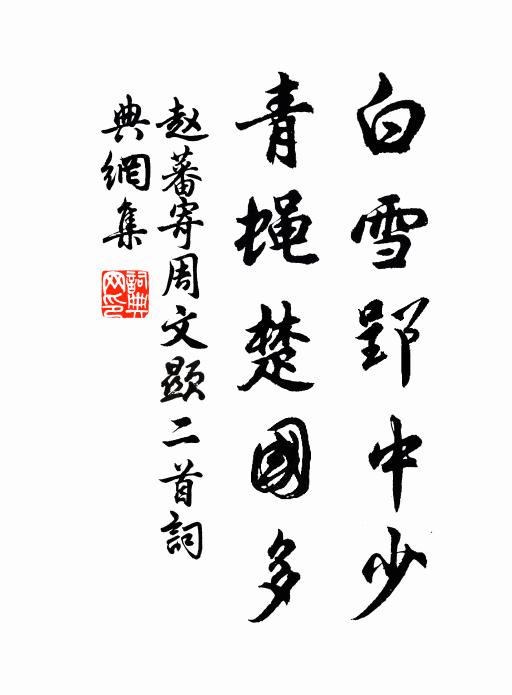 白雪郢中少
青蝇楚國多
赵蕃寄周文顯二首詞
典網集
詞典
网印